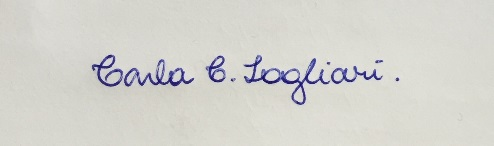 Carla C. Sogliari.